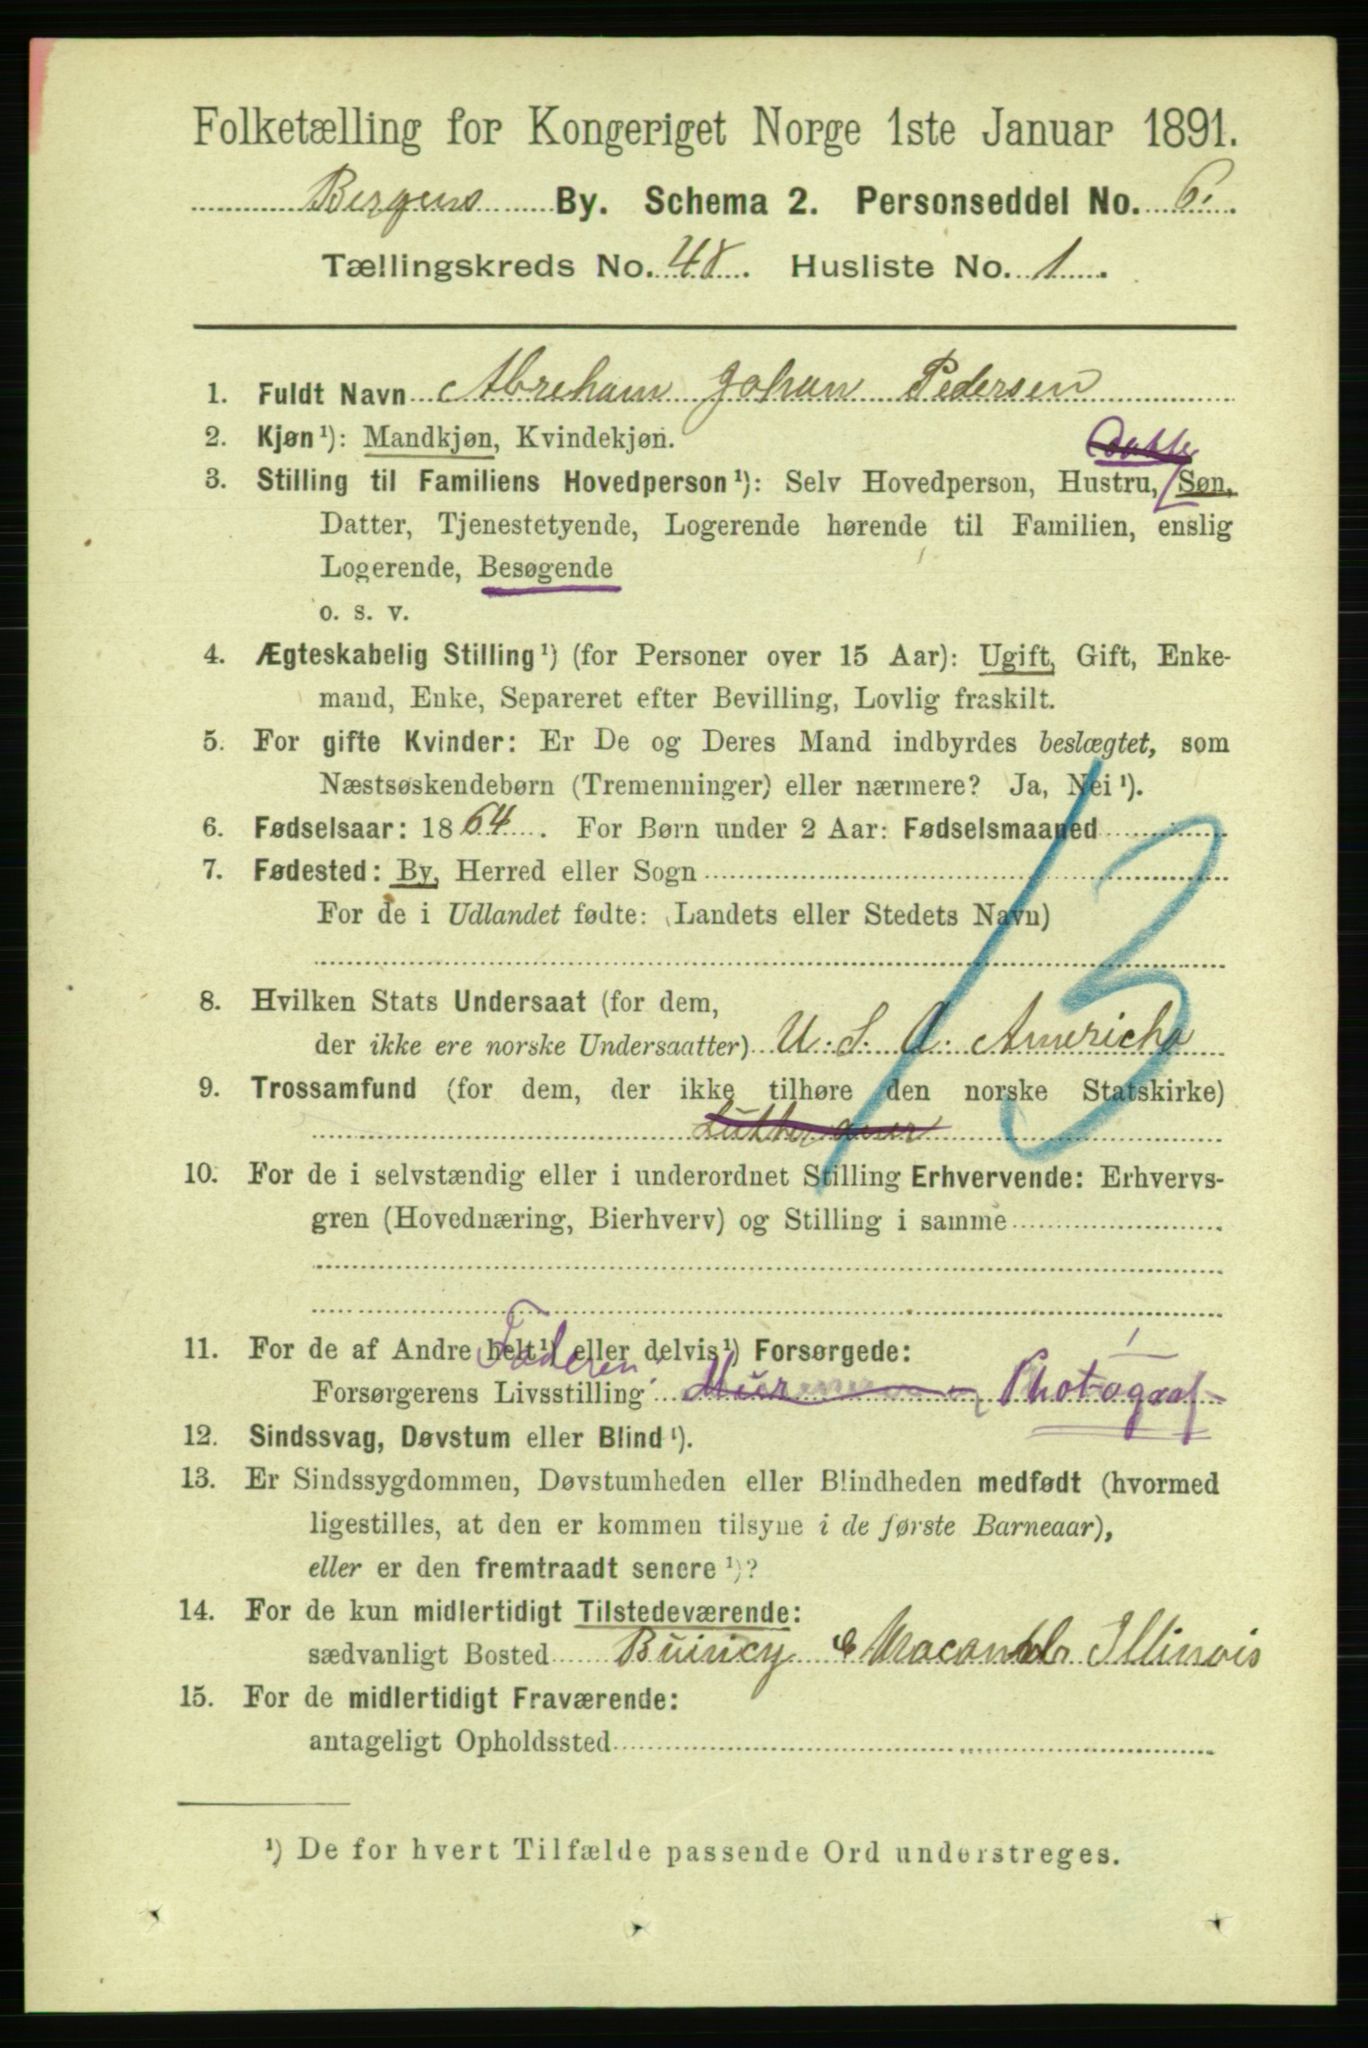 Folketælling for Kongeriget Norge 1ste Januar 1891.
Bergens By. Schema 2. Personseddel No. 6.
Tællingskreds No. 48. Husliste No. 1.
1. Fuldt Navn Abreham Johan Pedersen
2. Kjøn¹): Mandkjøn, Kvindekjøn.
3. Stilling til Familiens Hovedperson¹): Selv Hovedperson, Hustru, Søn,
Datter, Tjenestetyende, Logerende hørende til Familien, enslig
Logerende, Besøgende
o. s. v.
4. Ægteskabelig Stilling¹) (for Personer over 15 Aar): Ugift, Gift, Enke-
mand, Enke, Separeret efter Bevilling, Lovlig fraskilt.
5. For gifte Kvinder: Er De og Deres Mand indbyrdes beslægtet, som
Næstsøskendebørn (Tremenninger) eller nærmere? Ja, Nei¹).
6. Fødselsaar: 1864. For Børn under 2 Aar: Fødselsmaaned
7. Fødested: By, Herred eller Sogn
For de i Udlandet fødte: (Landets eller Stedets Navn)
13
8. Hvilken Stats Undersaat (for dem,
der ikke ere norske Undersaatter) U. S. A. Americha
9. Trossamfund (for dem, der ikke tilhøre den norske Statskirke)
Lutheraner
10. For de i selvstændig eller i underordnet Stilling Erhvervende: Erhvervs-
gren (Hovednæring, Bierhverv) og Stilling i samme
11. For de af Andre helt¹) eller delvis¹) Forsørgede:
Faderen
Forsørgerens Livsstilling: Photograf
12. Sindssvag, Døvstum eller Blind¹).
13. Er Sindssygdommen, Døvstumheden eller Blindheden medfødt (hvormed
ligestilles, at den er kommen tilsyne i de første Barneaar),
eller er den fremtraadt senere¹)?
14. For de kun midlertidigt Tilstedeværende:
sædvanligt Bosted Illinois
15. For de midlertidigt Fraværende:
antageligt Opholdssted
¹) De for hvert Tilfælde passende Ord understreges.